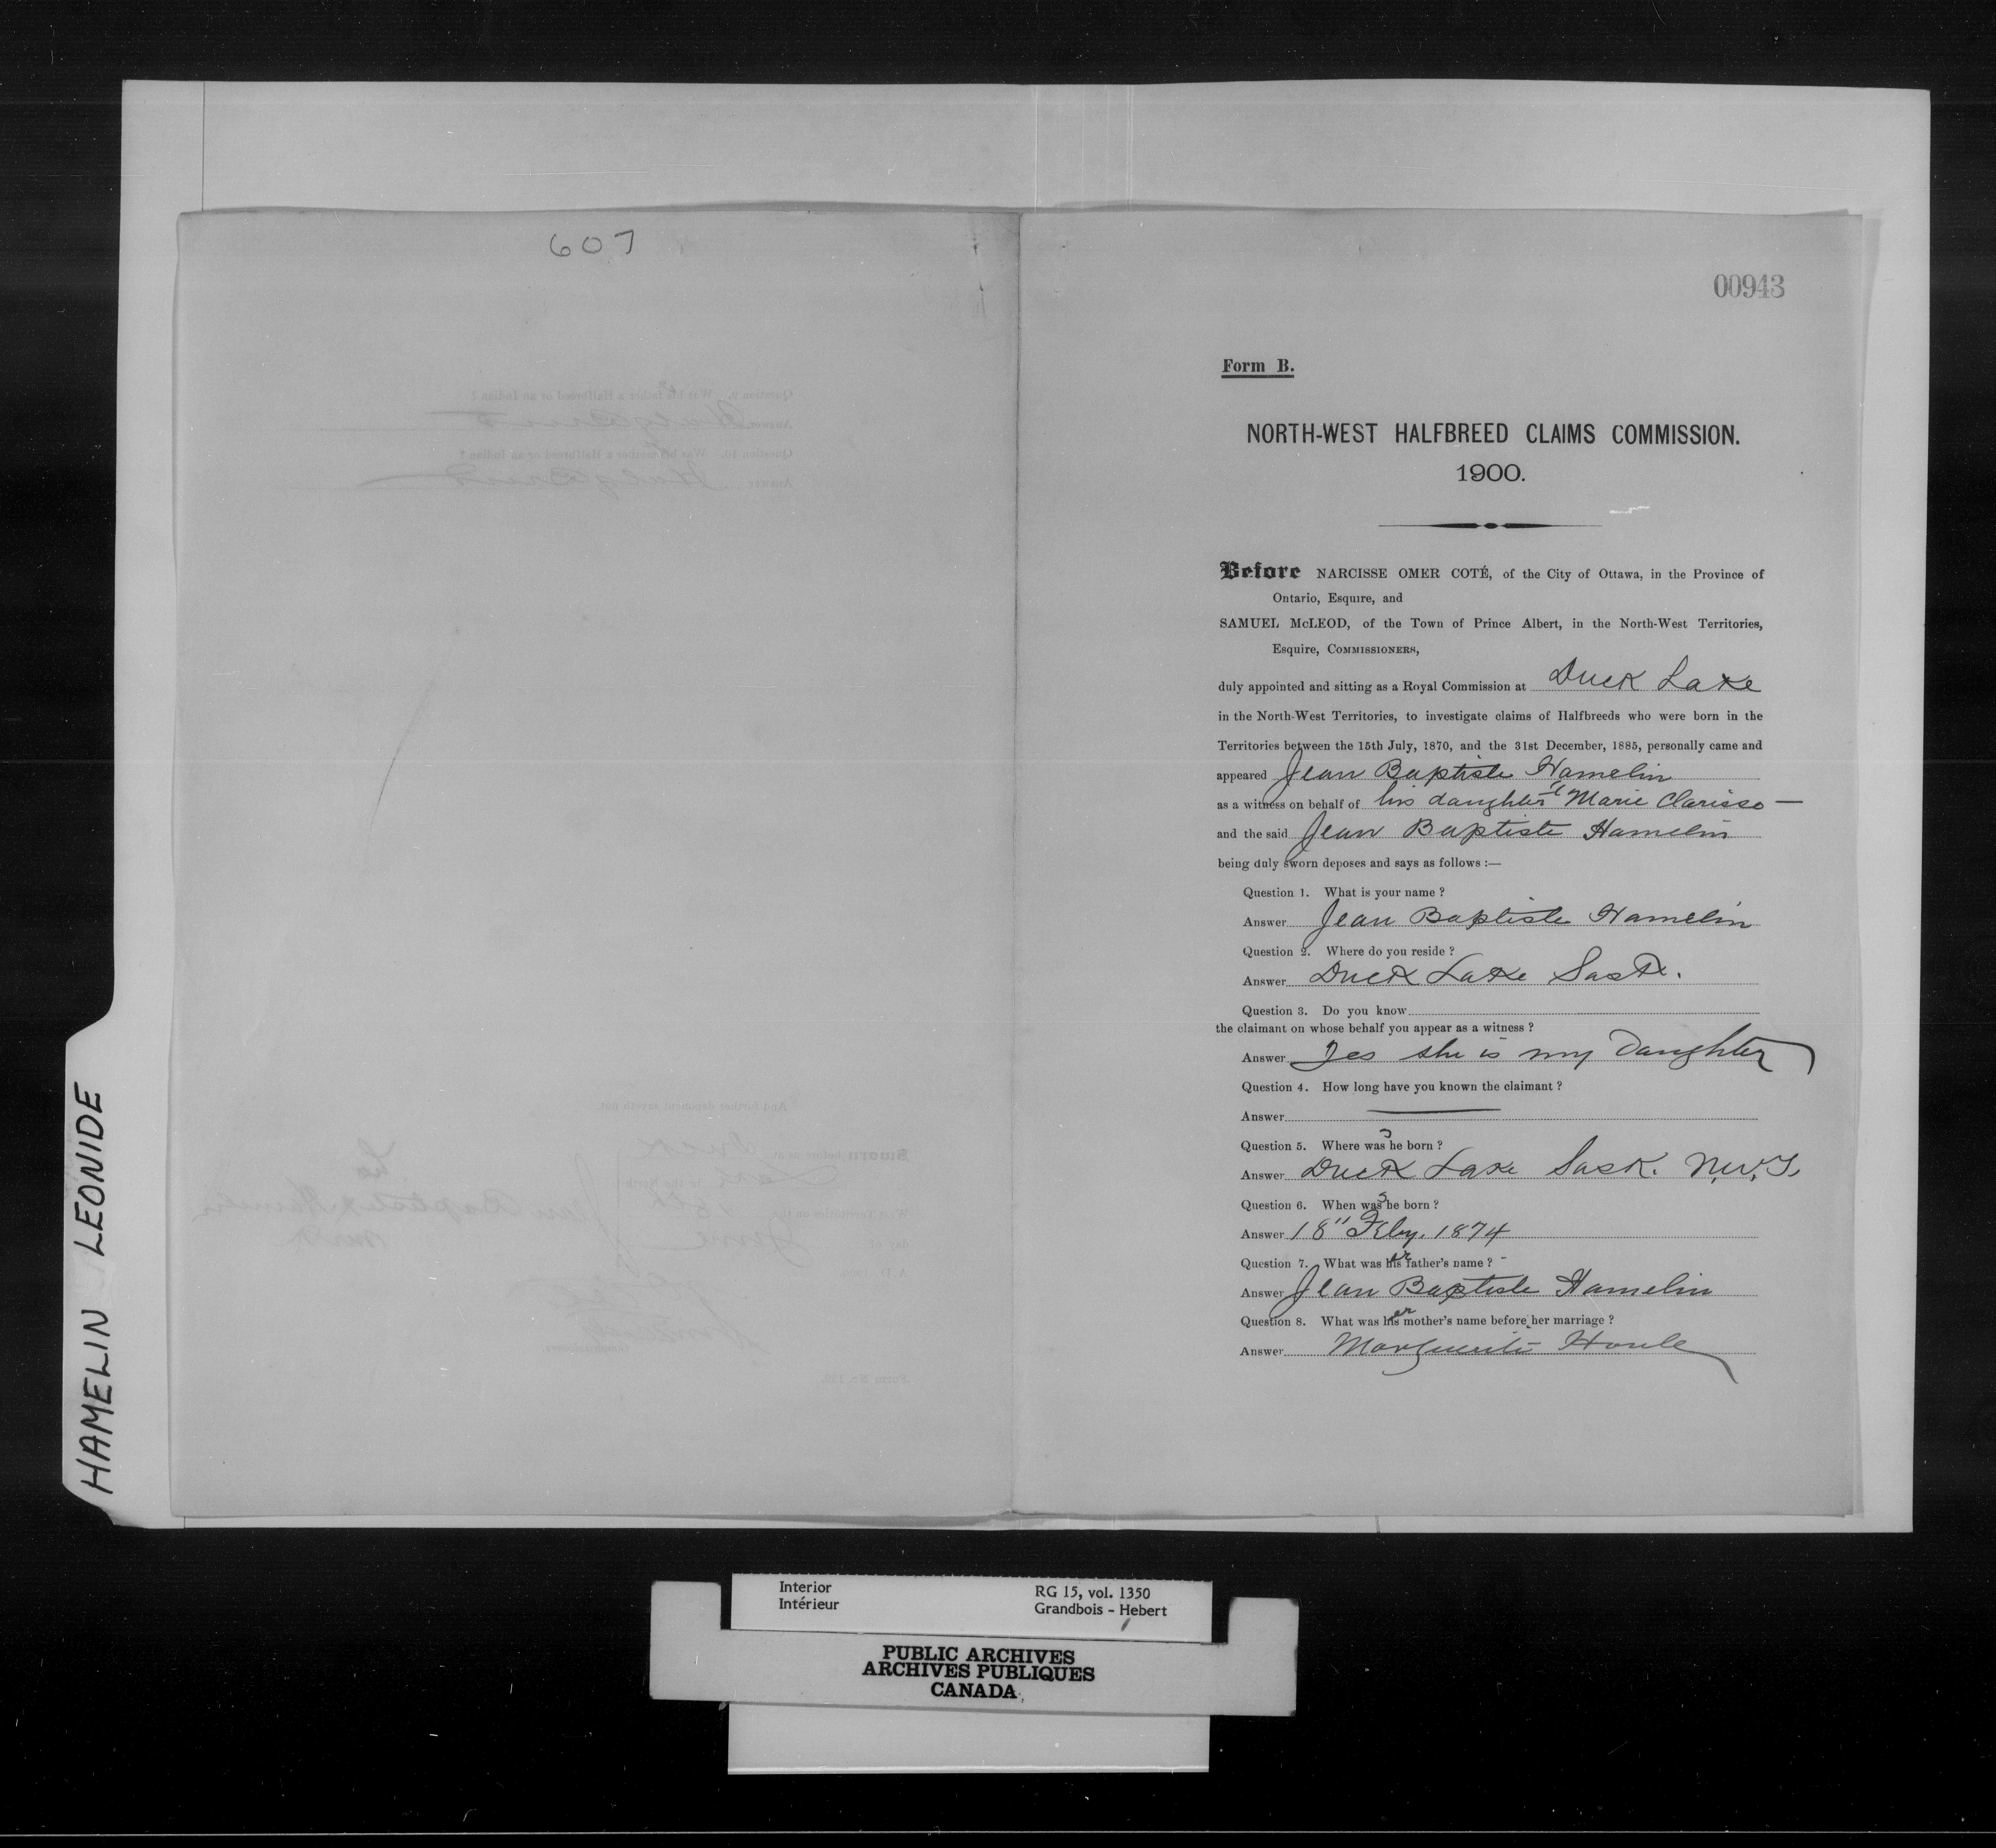 607
00943
Form B.
NORTH-WEST HALFBREED CLAIMS COMMISSION.
1900.
Before NARCISSE OMER COTÉ, of the City of Ottawa, in the Province of
Ontario, Esquire, and
SAMUEL McLEOD, of the Town of Prince Albert, in the North-West Territories,
Esquire, COMMISSIONERS,
duly appointed and sitting as a Royal Commission at Duck Lake
in the North-West Territories, to investigate claims of Halfbreeds who were born in the
Territories between the 15th July, 1870, and the 31st December, 1885, personally came and
appeared Jean Baptiste Hamelin
as a witness on behalf of his daughter Marie Clarisse —
and the said Jean Baptiste Hamelin
being duly sworn deposes and says as follows :—
Question 1. What is your name ?
Answer Jean Baptiste Hamelin
Question 2. Where do you reside ?
Answer Duck Lake Sask.
Question 3. Do you know
the claimant on whose behalf you appear as a witness ?
Answer Yes she is my Daughter
Question 4. How long have you known the claimant ?
Answer —
Question 5. Where was she born ?
Answer Duck Lake Sask. N.W.T.
Question 6. When was she born ?
Answer 18" Feby. 1874
Question 7. What was her father's name ?
Answer Jean Baptiste Hamelin
Question 8. What was her mother's name before her marriage ?
Answer Marguerite Houle
HAMELIN LEONIDE
Interior
Intérieur
RG 15, vol. 1350
Grandbois - Hebert
PUBLIC ARCHIVES
ARCHIVES PUBLIQUES
CANADA